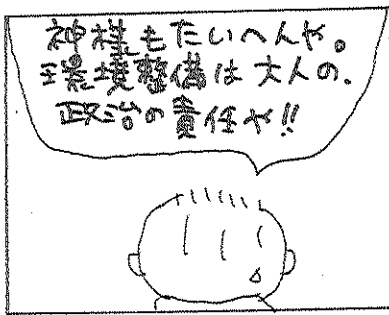 神様もたいへんや。
環境整備は大人の.
政治の責任や!!